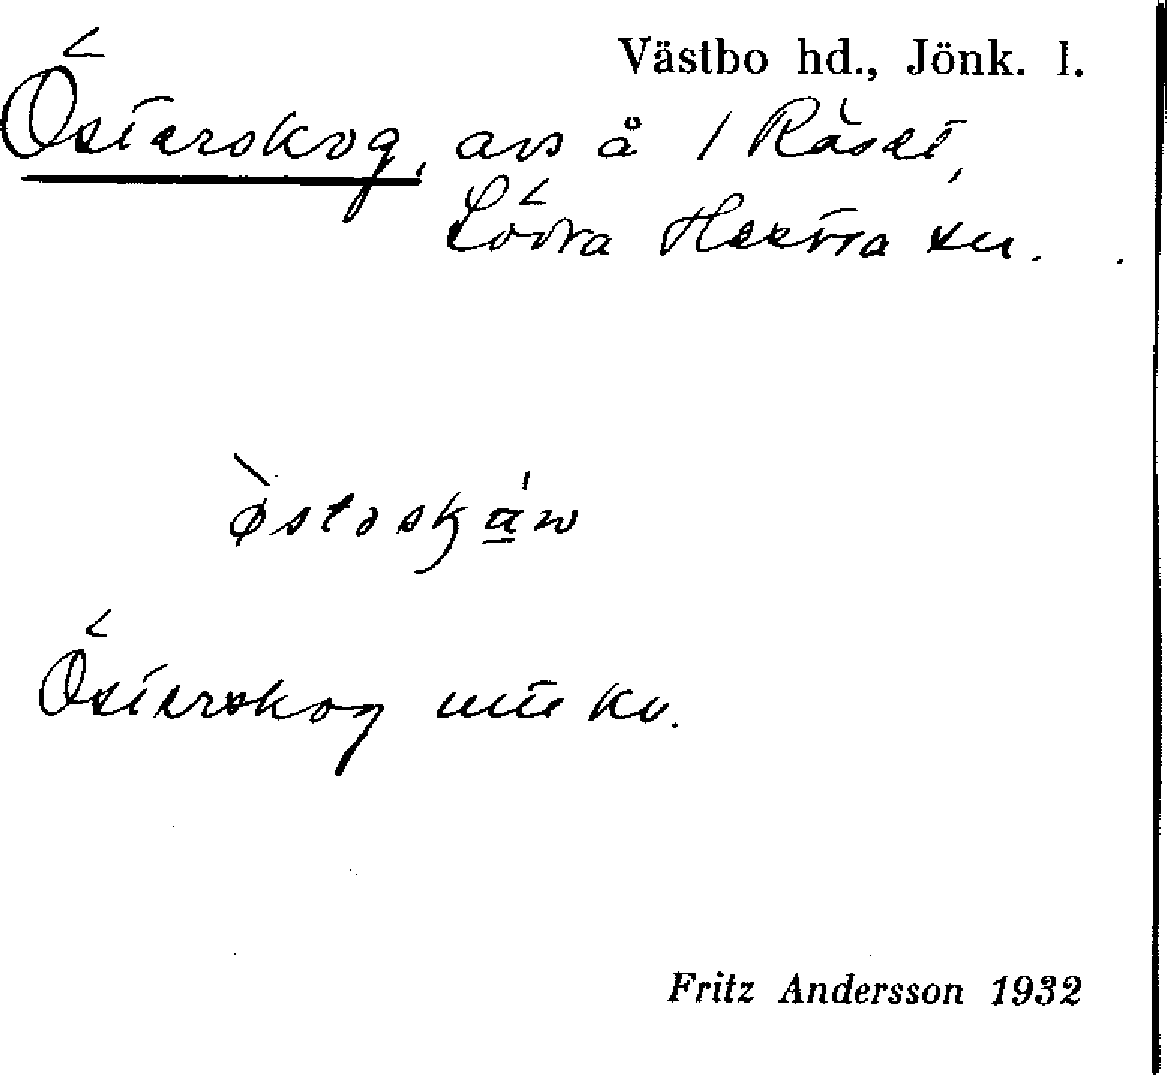 Västbo hd., Jönk. l.
Österskog, avs å 1 Råset,
Södra Hestra sn.
Österskog ute kv.
Fritz Andersson 1932